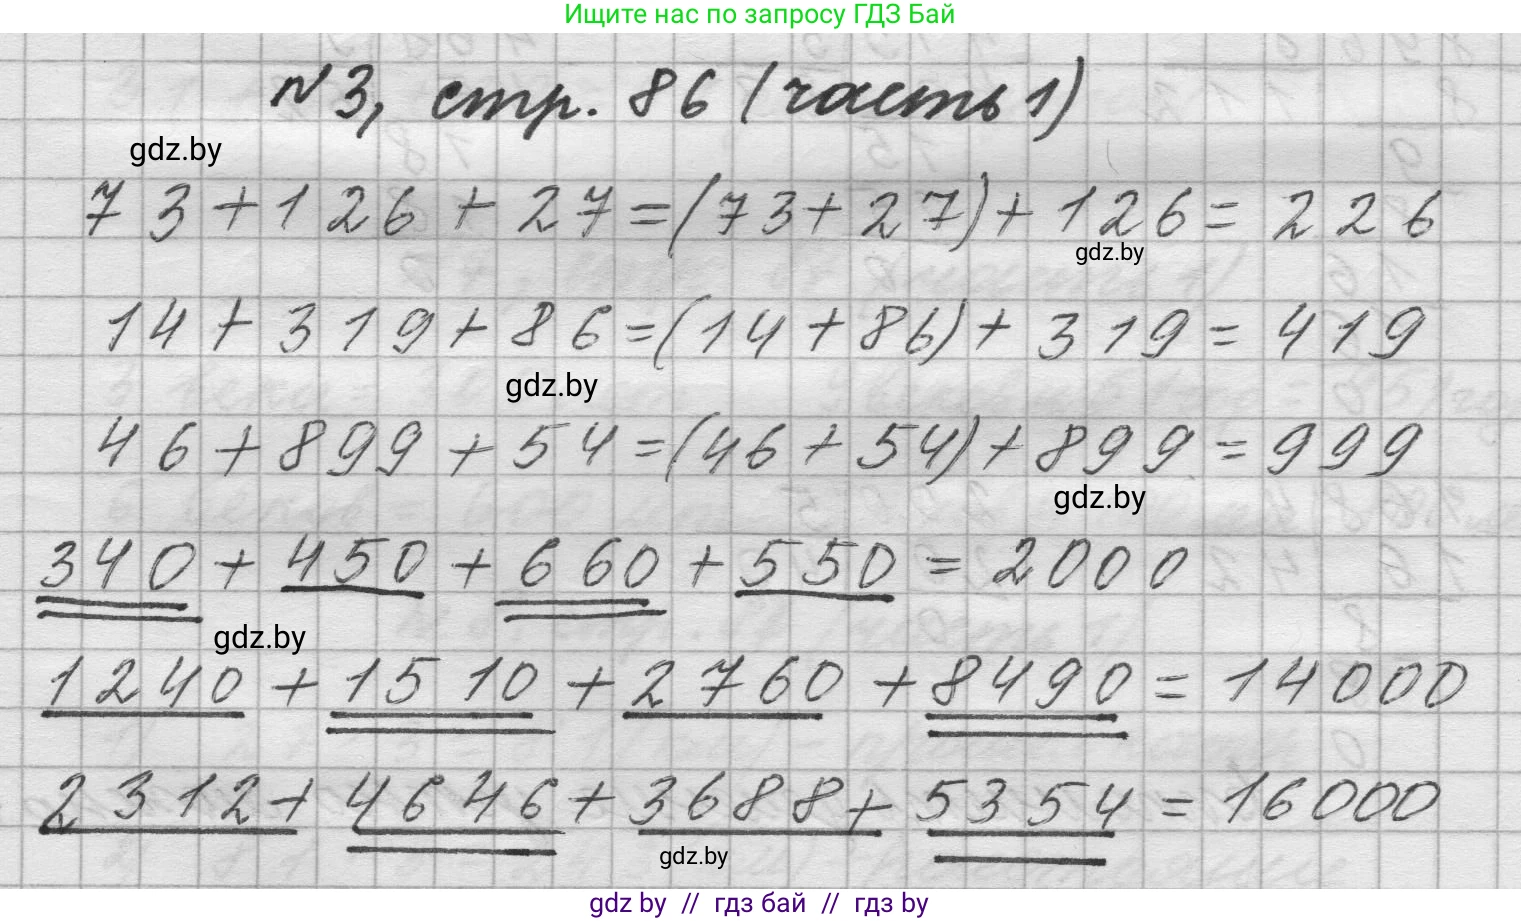 Ищите нас по запросу ГДЗ Бай
№3, стр. 86 (часть 1)
gdz.by
73+126+27=(73+27)+126=226
gdz.by
14+319+86=(14+86)+319=419
gdz.by
46+899+54=(46+54)+899=999
gdz.by
340+450+660+550=2000
gdz.by
1240+1510+2760+8490=14000
2312+4646+3688+5354=16000
gdz.by
gdz by // гдз бай // гдз by